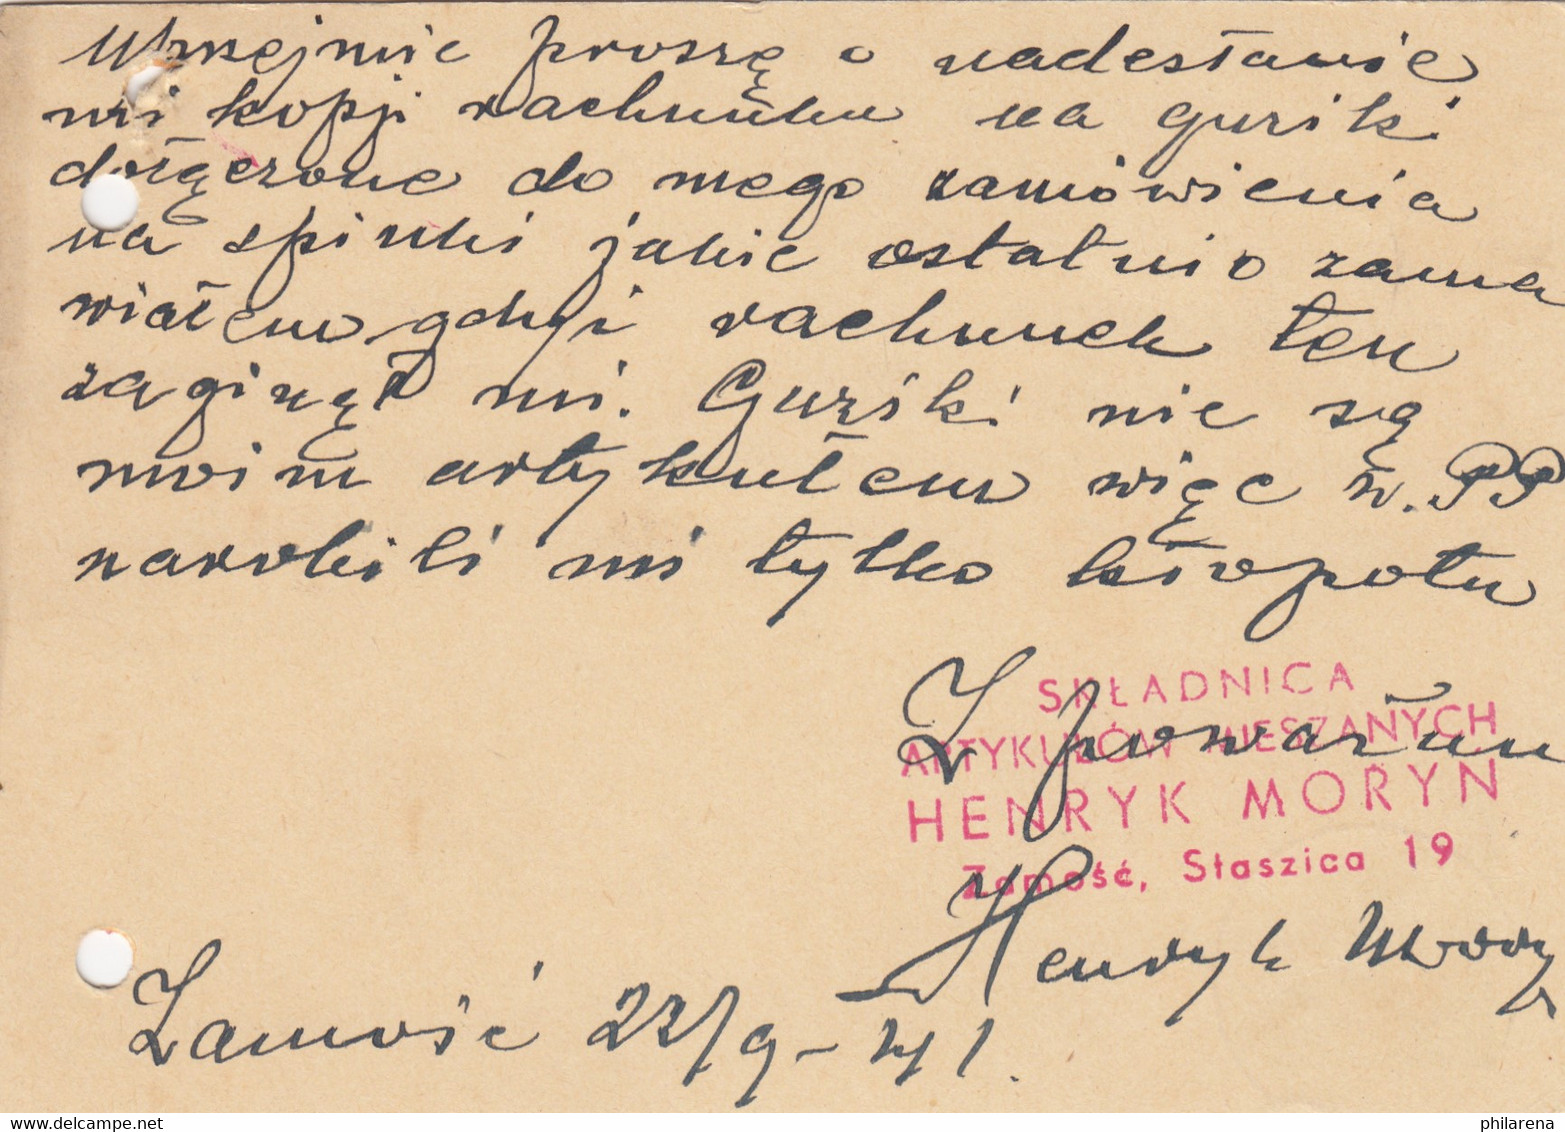 Uprzejmie proszę o nadesłanie
mi kopji rachunku na guziki
dołączone do mego zamówienia
na spinki jakie ostatnio zama
wiałem gdyż rachunek ten
zaginął mi. Guziki nie są
moim artykułem więc w. PP
narobili mi tylko kłopotu
SKŁADNICA
Z poważan
ARTYKUŁÓW MIESZANYCH
HENRYK MORYN
Zamość, Staszica 19
Henryk Moryn
Zamość 22/9-41.
philarena